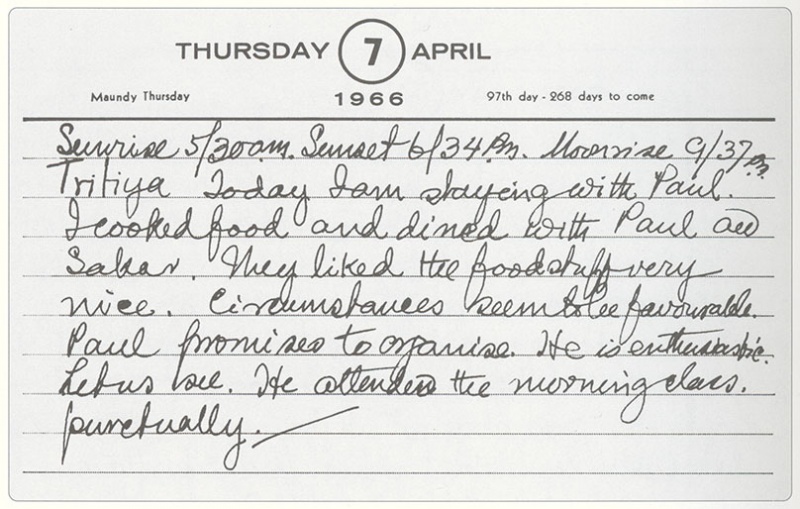 THURSDAY 7 APRIL
Maundy Thursday 1966 97th day - 268 days to come
Sunrise 5/30 am. Sunset 6/34 Pm. Moonrise 9/37 Pm.
Tritiya Today I am staying with Paul.
I cooked food and dined with Paul and
Sakar. They liked the foodstuff very
nice. Circumstances seem to be favourable.
Paul promises to organise. He is enthusiastic.
Let us see. He attended the morning class.
punctually.